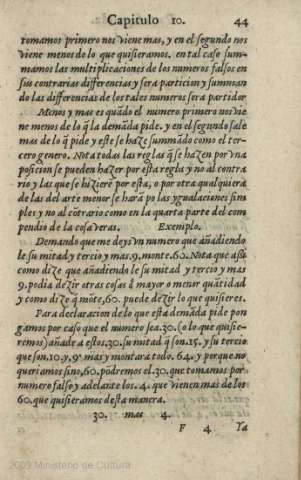 Capitulo 10. 44
tomamos primero nos viene mas, y en el segundo nos
viene menos de lo que quisieramos. en tal caso sum-
mamos las multiplicaciones de los numeros falsos en
sus contrarias differencias y sera particion y summan
do las differencias de los tales numeros sera partidor
Menos y mas es quãdo el numero primero nos vie
ne menos de lo q̃ la demãda pide. y en el segundo sale
mas de lo q̃ pide y este se haze summãdo como el ter-
cero genero. Nota todas las reglas q̃ se hazen por vna
posicion se pueden hazer por esta regla y no al contra
rio y las que se hizierẽ por esta, o por otra qualquiera
de las del arte menor se hara po las ygualaciones sim
ples y no al cõtrario como en la quarta parte del com
pendio de la cosa veras. Exemplo.
Demando que me deys vn numero que añadiendo
le su mitad y tercio y mas.9.monte.60. Nota que assi
como dize que añadiendo le su mitad y tercio y mas
9.podia dezir otras cosas õ mayor o menor quãtidad
y como dize q̃ mõte,60. puede dezir lo que quisieres.
Para declaracion de lo que esta demãda pide pon
gamos por caso que el numero sea.30.(o lo que quisie-
remos) añade a estos.30.su mitad q̃ son.15. y su tercio
que son.10.y.9. mas y montara todo. 64. y porque no
queriamos sino,60.põdremos el.30.que tomamos por
numero falso y adelante los.4. que vienen mas de los
60.que quisieramos desta manera.
30. mas 4.
F 4 Ya
2009 Ministerio de Cultura